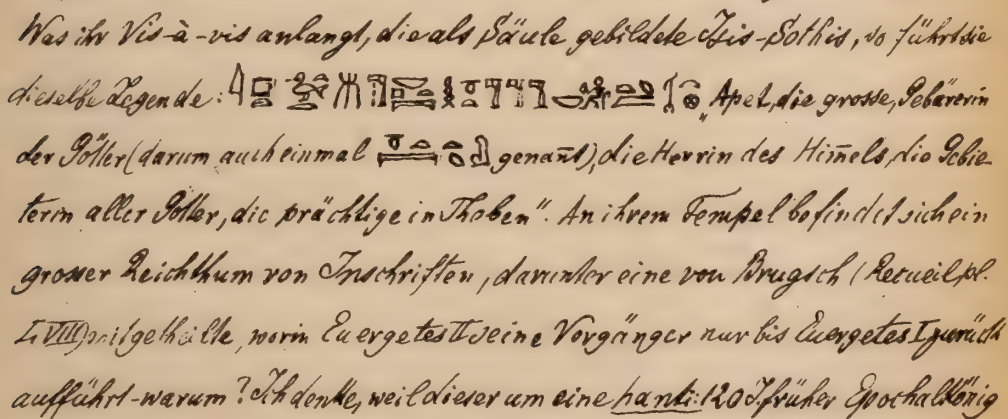 Was ihr Vis-à-vis anlangt, die als Säule gebildete Isis-Sothis, so führt sie
dieselbe Legende: „Apet, die grosse, Gebärerin
der Götter (darum auch einmal genan̄t), die Herrin des Him̄els, die Gebie-
terin aller Götter, die prächtige in Theben". An ihrem Tempel befindet sich ein
grosser Reichthum von Inschriften, darunter eine von Brugsch (Recueil pl.
mitgetheilte, worin Euergetes II seine Vorgänger nur bis Euergetes I zurück
aufführt - warum? Ich denke, weil dieser um eine hanti: 120 J. früher Epochalkönig